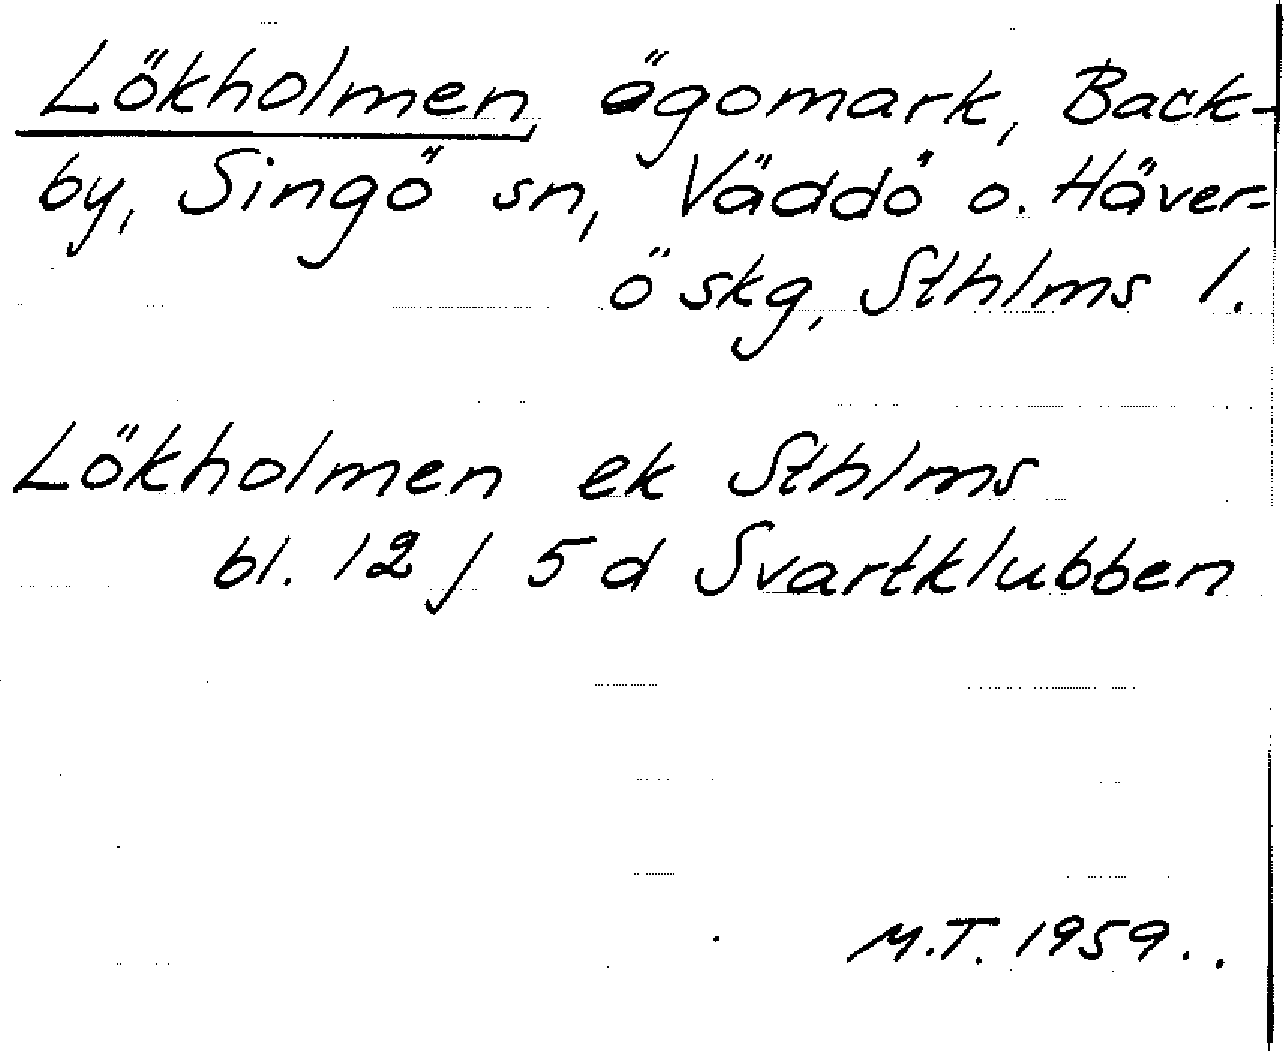 Lökholmen, ägomark, Back-
by, Singö sn, Väddö o. Häver-
ö skg, Sthlms l.
Lökholmen ek Sthlms
bl. 12 / 5 d Svartklubben
M.T. 1959.